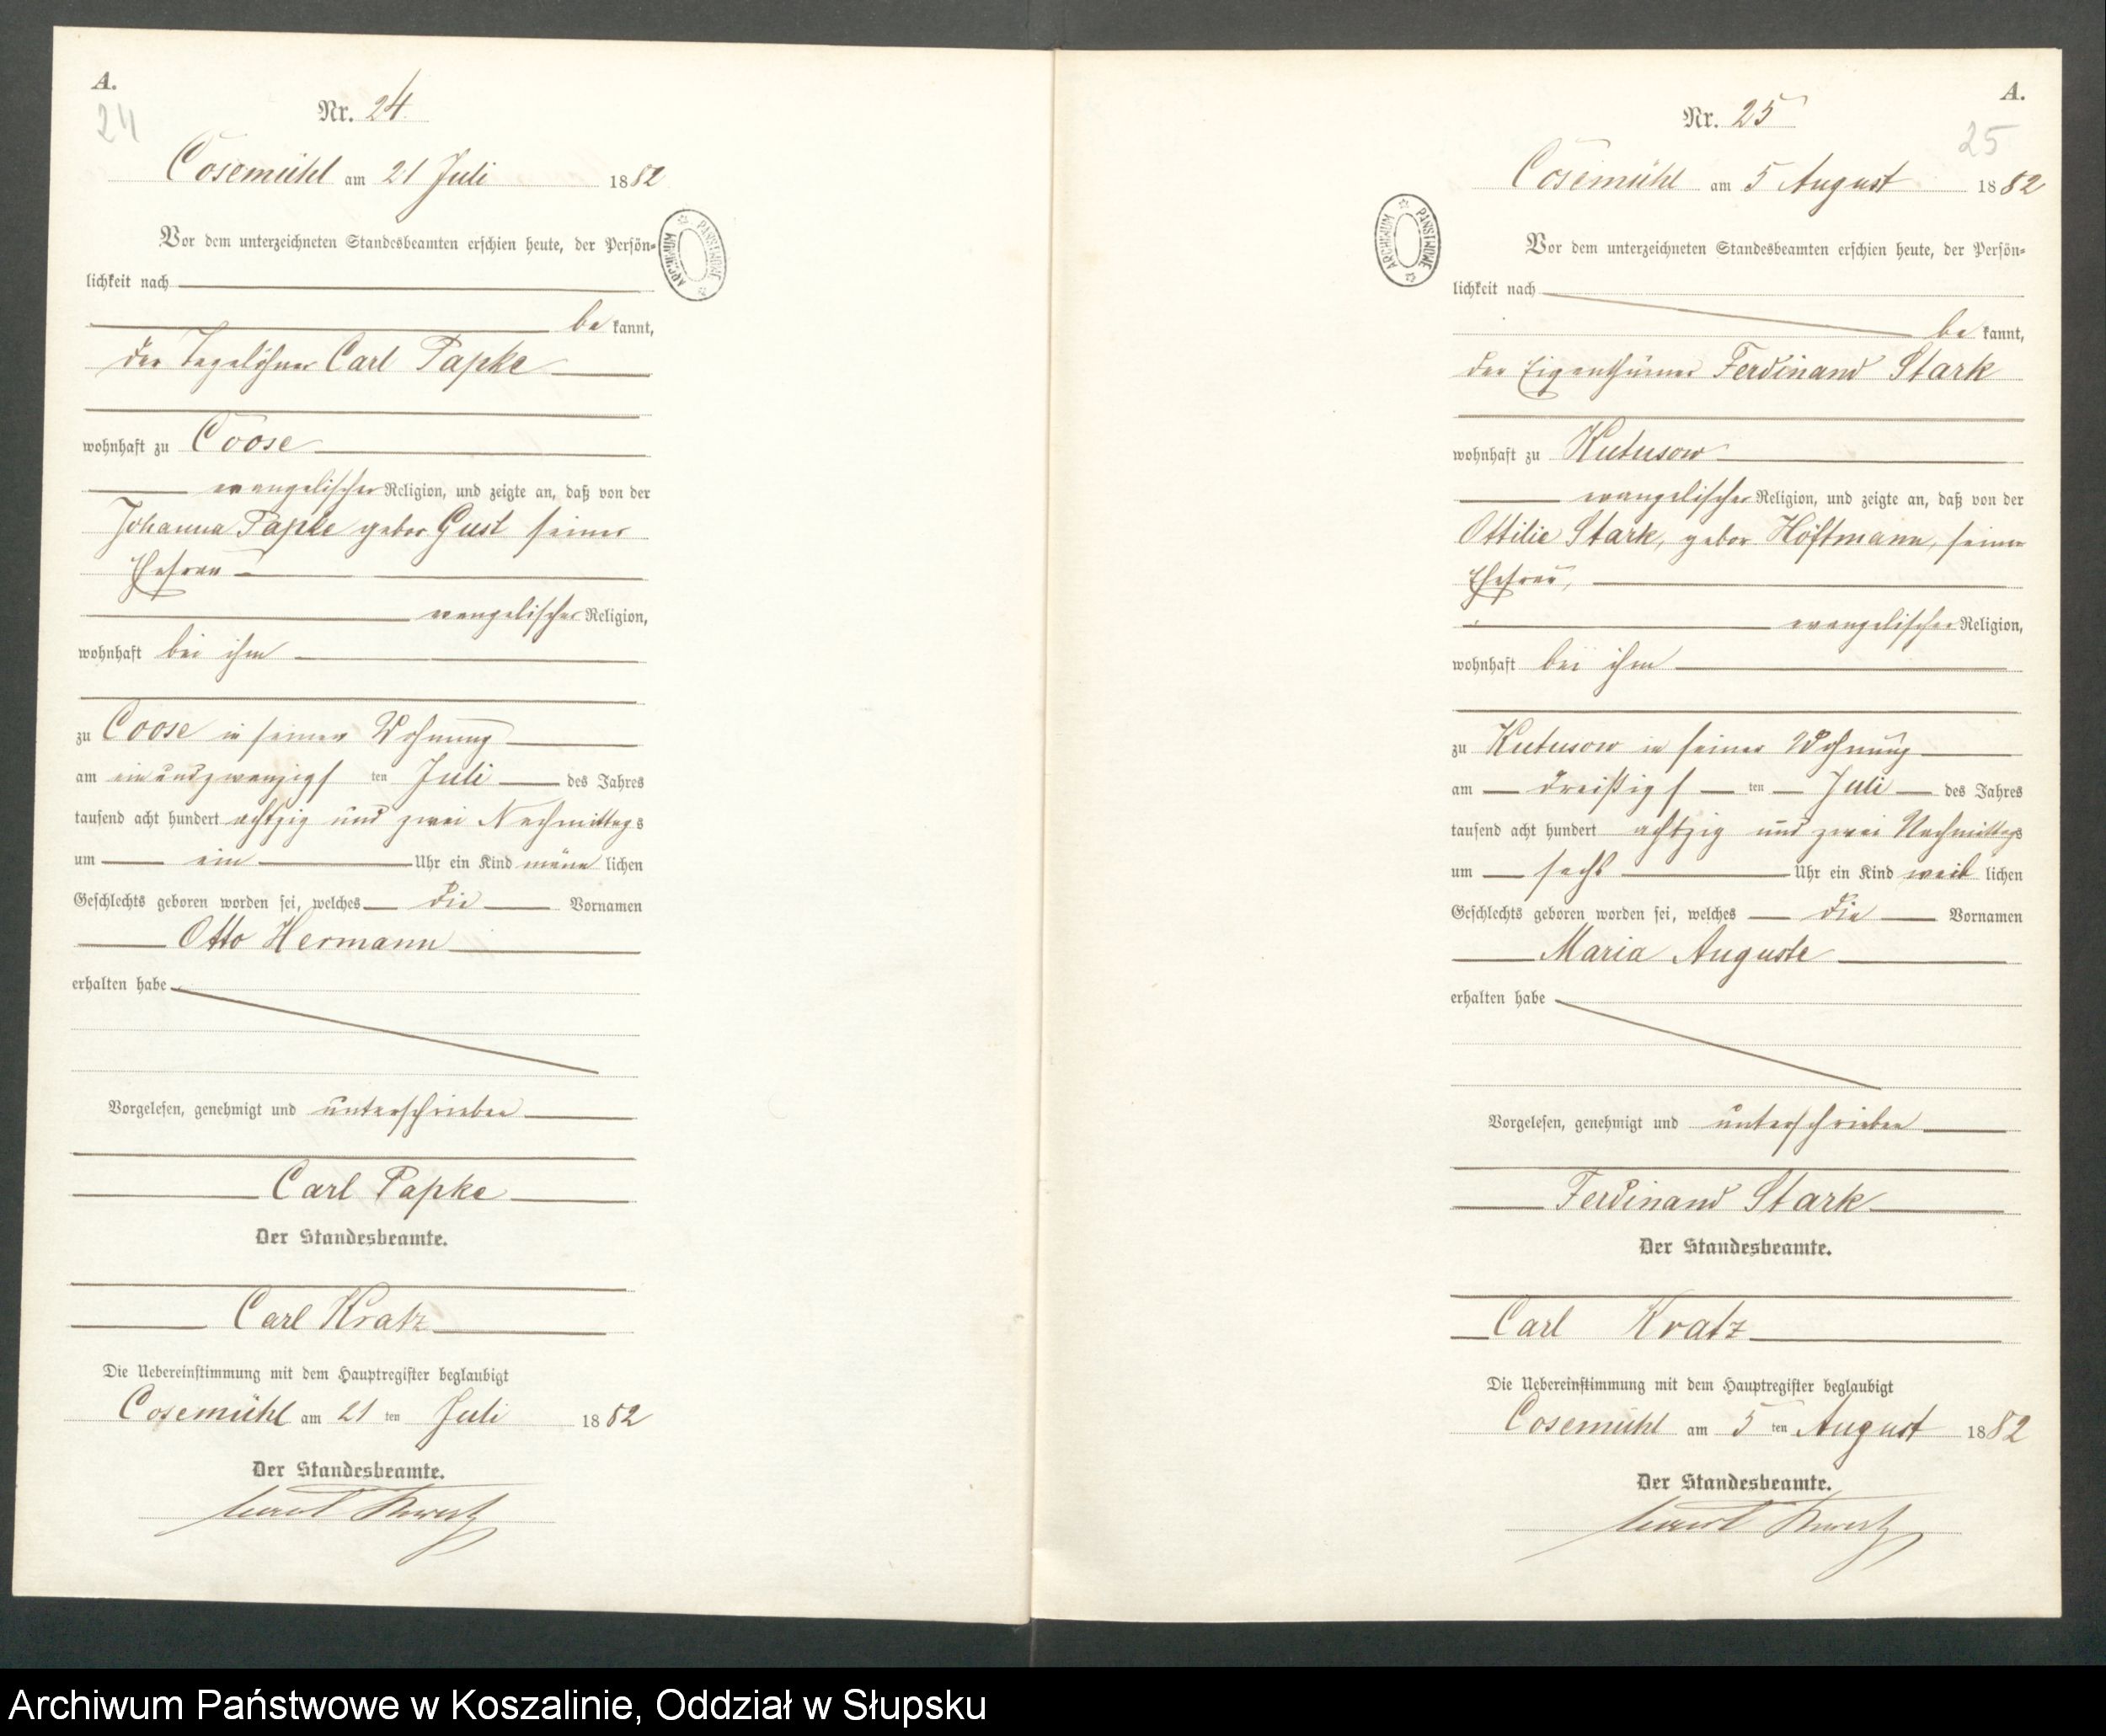 A.
24
Nr. 24.
Cosemühl am 21 Juli 1882
Vor dem unterzeichneten Standesbeamten erschien heute, der Persön-
lichkeit nach
be kannt,
der Tagelöhner Carl Papke
wohnhaft zu Coose
evangelischer Religion, und zeigte an, daß von der
Johanna Papke gebor Gust seiner
Ehefrau
evangelischer Religion,
wohnhaft bei ihm
zu Coose in seiner Wohnung
am einundzwanzigs ten Juli des Jahres
tausend acht hundert achtzig und zwei Nachmittags
um ein Uhr ein Kind männ lichen
Geschlechts geboren worden sei, welches die Vornamen
Otto Hermann
erhalten habe
Vorgelesen, genehmigt und unterschrieben
Carl Papke
Der Standesbeamte.
Carl Kratz
Die Uebereinstimmung mit dem Hauptregister beglaubigt
Cosemühl am 21 ten Juli 1882
Der Standesbeamte.
Carl Kratz
ARCHIWUM PAŃSTWOWE
A.
25
Nr. 25
Cosemühl am 5 August 1882
Vor dem unterzeichneten Standesbeamten erschien heute, der Persön-
lichkeit nach
be kannt,
der Eigenthümer Ferdinand Stark
wohnhaft zu Kutusow
evangelischer Religion, und zeigte an, daß von der
Ottilie Stark, gebor Höftmann, seiner
Ehefrau,
evangelischer Religion,
wohnhaft bei ihm
zu Kutusow in seiner Wohnung
am dreißigs ten Juli des Jahres
tausend acht hundert achtzig und zwei Nachmittags
um sechs Uhr ein Kind weib lichen
Geschlechts geboren worden sei, welches die Vornamen
Maria Auguste
erhalten habe
Vorgelesen, genehmigt und unterschrieben
Ferdinand Stark
Der Standesbeamte.
Carl Kratz
Die Uebereinstimmung mit dem Hauptregister beglaubigt
Cosemühl am 5 ten August 1882
Der Standesbeamte.
Carl Kratz
ARCHIWUM PAŃSTWOWE
Archiwum Państwowe w Koszalinie, Oddział w Słupsku